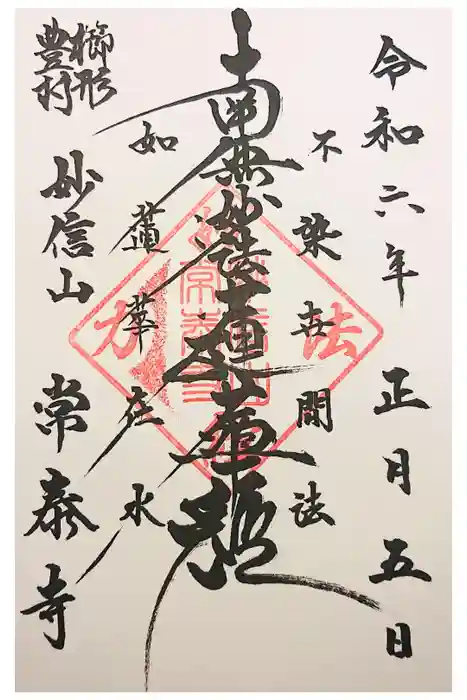 令和六年 正月 五日
不染世間法
南無妙法蓮華経
如蓮華在水
櫛形
豊村
妙信山 常泰寺